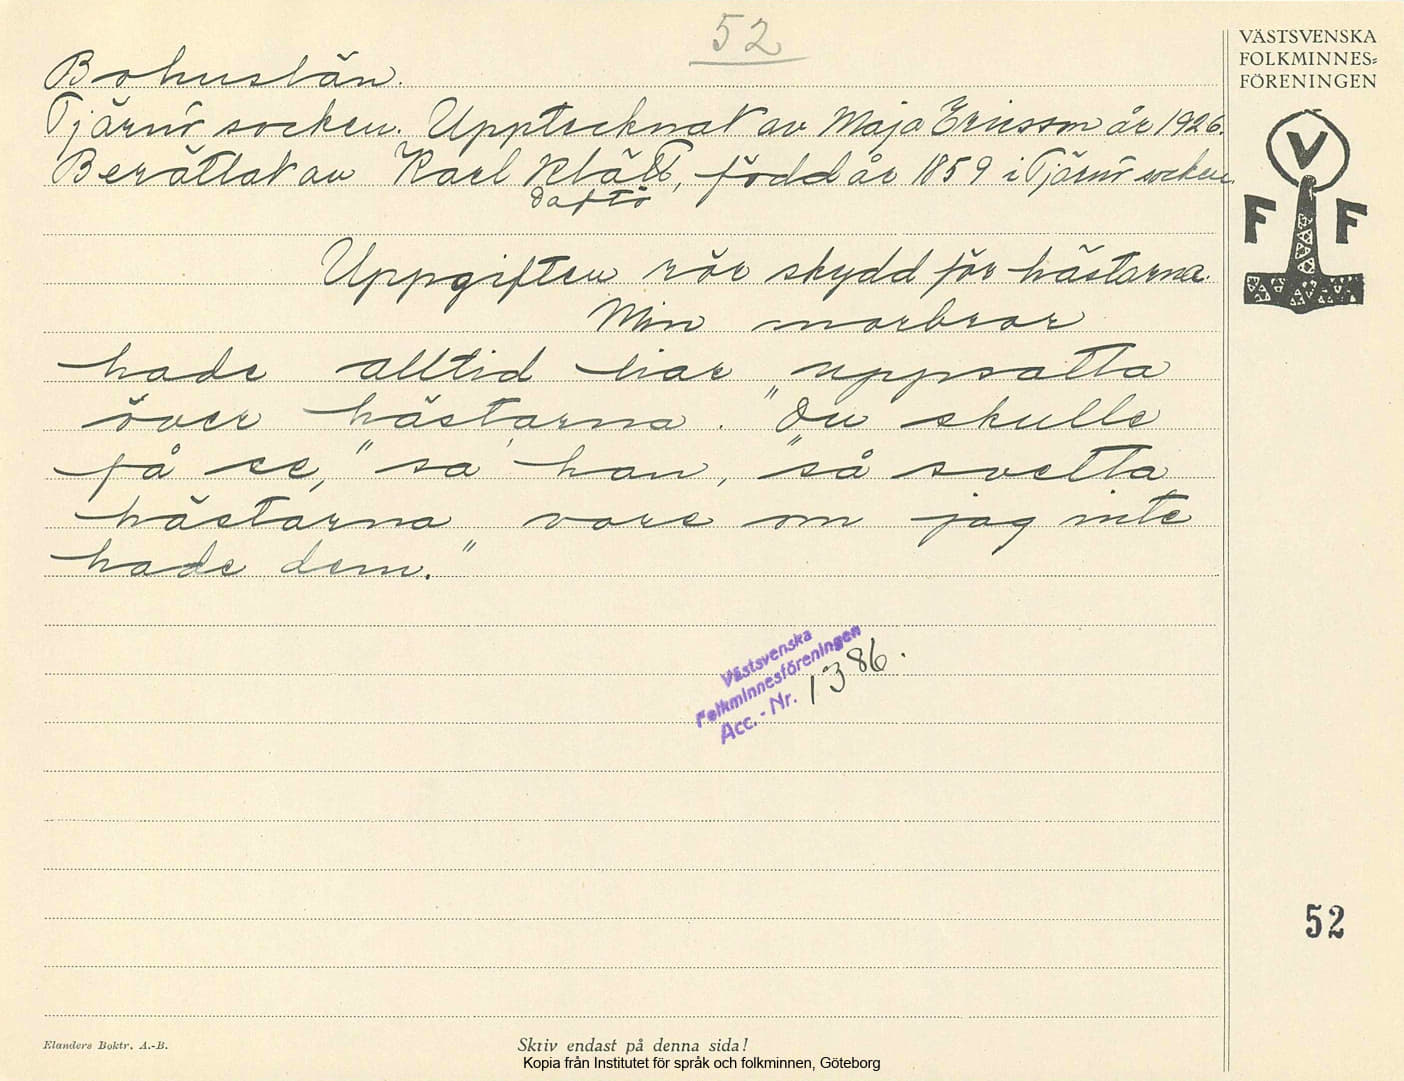 52
Bohuslän.
Tjärnö socken. Upptecknat av Maja Ericsson år 1926.
Berättat av Karl Klätt, född år 1859 i Tjärnö socken
Daftö
Uppgiften rör skydd för hästarna.
Min morbror
hade alltid liar uppsatta
över hästarna. "Du skulle
få se," sa' han, "så svetta
hästarna vore om jag inte
hade dem."
Västsvenska
Folkminnesföreningen
Acc.-Nr. 1386.
VÄSTSVENSKA
FOLKMINNES-
FÖRENINGEN
V
F F
52
Elanders Boktr. A.-B.
Skriv endast på denna sida!
Kopia från Institutet för språk och folkminnen, Göteborg